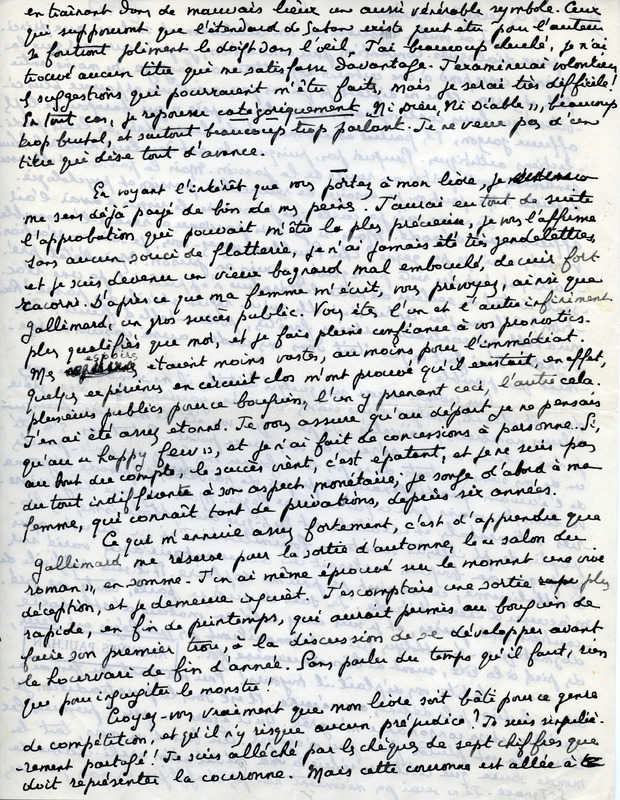 en traînant dans de mauvais lieux un aussi vénérable symbole. Ceux
qui supposeront que l'étendard de Satan existe peut-être pour l'auteur
se foutront joliment le doigt dans l'œil. J'ai beaucoup cherché, je n'ai
trouvé aucun titre qui me satisfasse davantage. J'examinerai volontiers
les suggestions qui pourraient m'être faites, mais je serai très difficile !
En tout cas, je repousse catégoriquement « Ni Dieu, Ni Diable », beaucoup
trop brutal, et surtout beaucoup trop parlant. Je ne veux pas d'un
titre qui dise tout d'avance.
En voyant l'intérêt que vous portez à mon livre, je
me sens déjà payé de bien de mes peines. J'aurai eu tout de suite
l'approbation qui pouvait m'être la plus précieuse, je vous l'affirme
sans aucun souci de flatterie, je n'ai jamais été très gendelettres,
et je suis devenu un vieux bagnard mal embouché, de cuir fort
racorni. D'après ce que ma femme m'écrit, vous prévoyez, ainsi que
Gallimard, un gros succès public. Vous êtes l'un et l'autre infiniment
plus qualifiés que moi, et je fais pleine confiance à vos pronostics.
Mes espoirs étaient moins vastes, au moins pour l'immédiat.
Quelques expériences en circuit clos m'ont prouvé qu'il existait, en effet,
plusieurs publics pour ce bouquin, l'un y prenant ceci, l'autre cela.
J'en ai été assez étonné. Je vous assure qu'au départ je ne pensais
qu'au « happy few », et je n'ai fait de concessions à personne. Si,
au bout du compte, le succès vient, c'est épatant, et je ne suis pas
du tout indifférent à son aspect monétaire ; je songe d'abord à ma
femme, qui connaît tant de privations, depuis six années.
Ce qui m'ennuie assez fortement, c'est d'apprendre que
Gallimard me réserve pour la sortie d'automne, le « salon du
roman », en somme. J'en ai même éprouvé sur le moment une vive
déception, et je demeure inquiet. J'escomptais une sortie plus
rapide, en fin de printemps, qui aurait permis au bouquin de
faire son premier trou, à la discussion de se développer avant
le hourvari de fin d'année. Sans parler du temps qu'il faut, rien
que pour ingurgiter le monstre !
Croyez-vous vraiment que mon livre soit bâti pour ce genre
de compétition, et qu'il n'y risque aucun préjudice ? Je suis singuliè-
rement partagé ! Je suis alléché par les chèques de sept chiffres que
doit représenter la couronne. Mais cette couronne est allée à